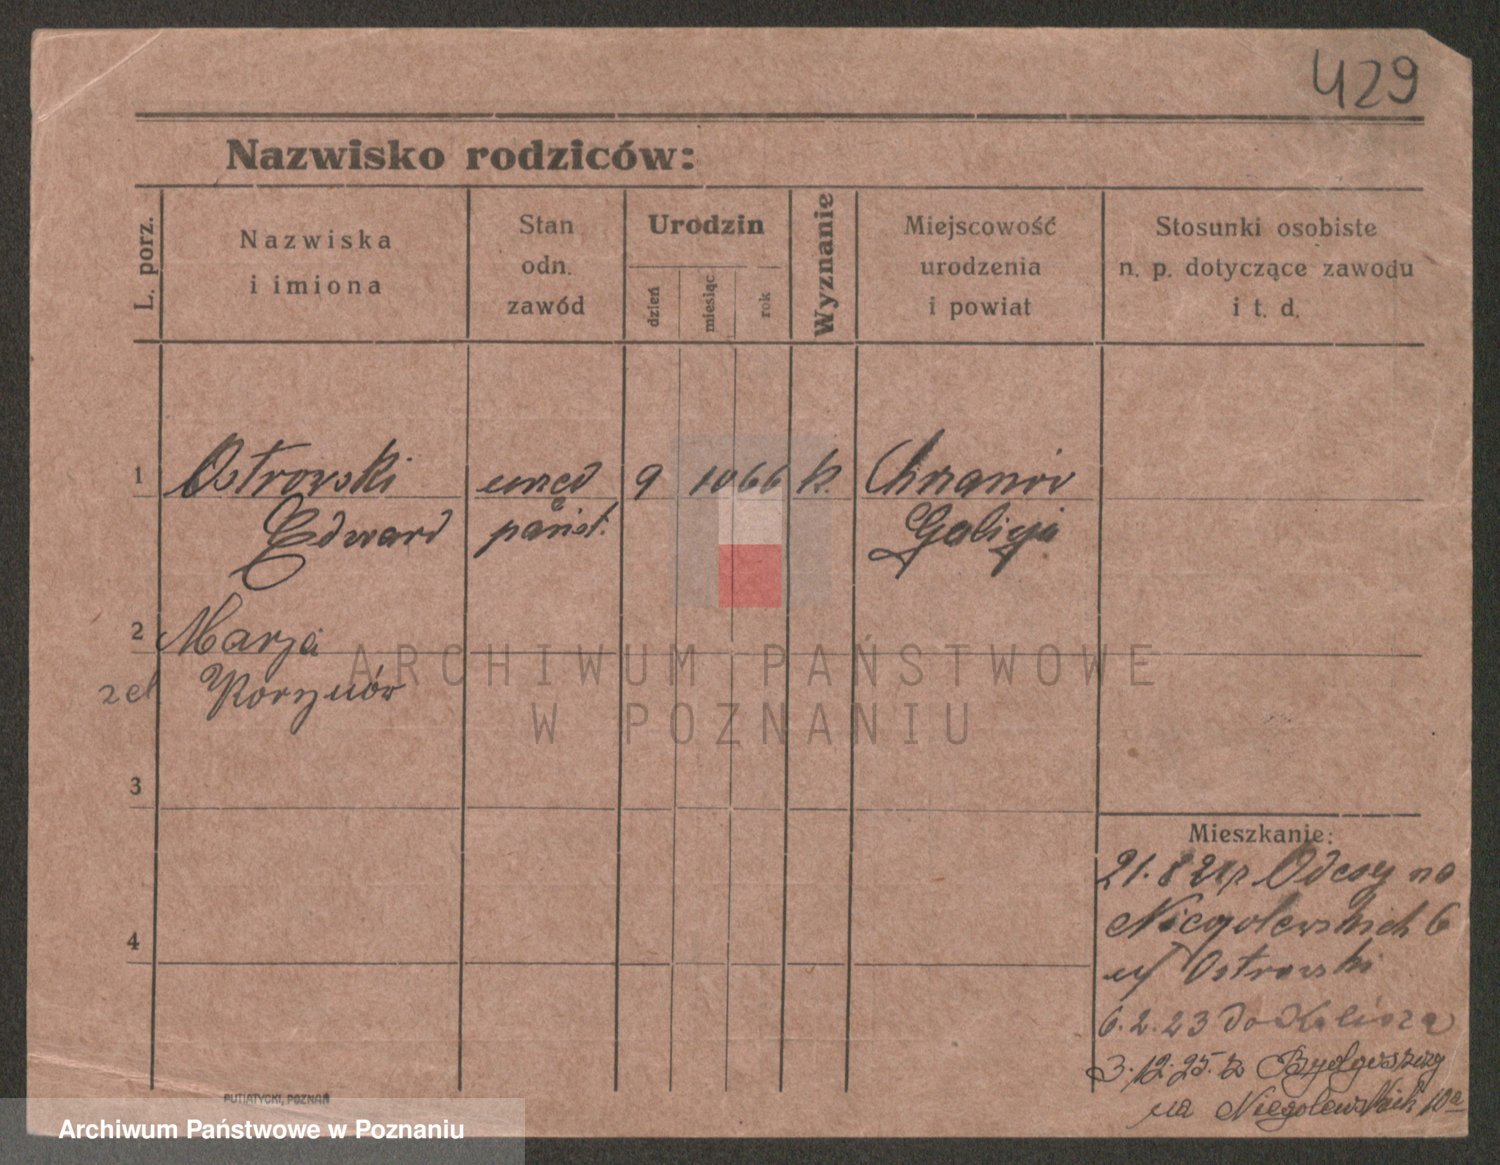 429
Nazwisko rodziców:
L. porz.
Nazwiska
i imiona
Stan
odn.
zawód
Urodzin
dzień
miesiąc
rok
Wyznanie
Miejscowość
urodzenia
i powiat
Stosunki osobiste
n. p. dotyczące zawodu
i t. d.
1 Ostrowski urzęd 9 10 66 k. Chrzanów
Edward państ. Galicja
2 Marja
ARCHIWUM PAŃSTWOWE
W POZNANIU
3
Mieszkanie:
21.8 Odesy na
4 Niegolewskich 6
Ostrowski
6.2.23 do Kalisza
3.12.25. z Bydgoszczy
na Niegolewskich 10a
PUTIATYCKI, POZNAŃ
Archiwum Państwowe w Poznaniu